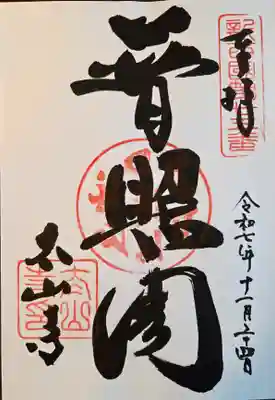 奉拝
普照閣
令和七年十一月二十四日
太山寺